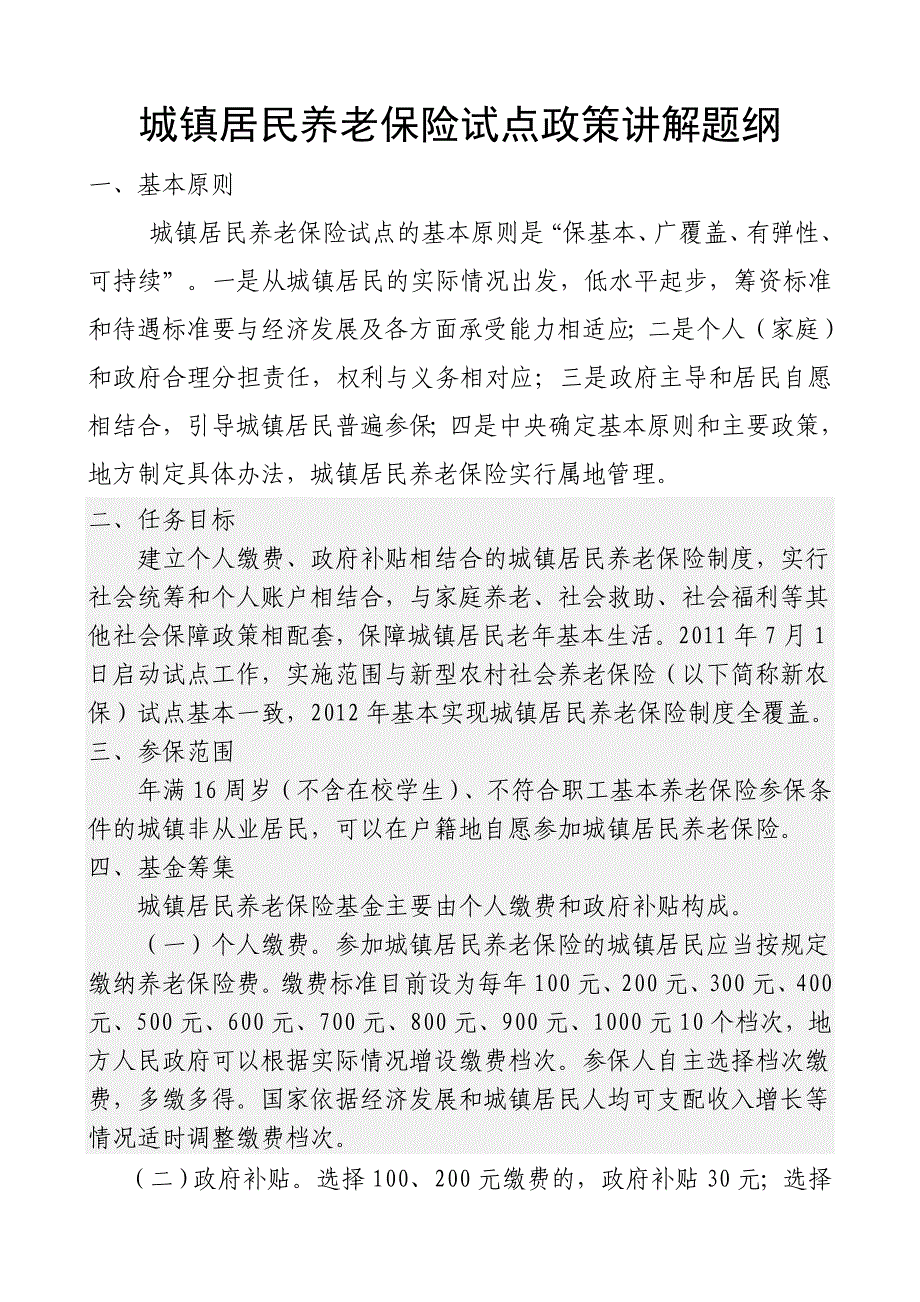 城镇居民养老保险试点政策讲解题纲
一、基本原则
城镇居民养老保险试点的基本原则是“保基本、广覆盖、有弹性、
可持续”。一是从城镇居民的实际情况出发，低水平起步，筹资标准
和待遇标准要与经济发展及各方面承受能力相适应；二是个人（家庭）
和政府合理分担责任，权利与义务相对应；三是政府主导和居民自愿
相结合，引导城镇居民普遍参保；四是中央确定基本原则和主要政策，
地方制定具体办法，城镇居民养老保险实行属地管理。
二、任务目标
建立个人缴费、政府补贴相结合的城镇居民养老保险制度，实行
社会统筹和个人账户相结合，与家庭养老、社会救助、社会福利等其
他社会保障政策相配套，保障城镇居民老年基本生活。2011年7月1
日启动试点工作，实施范围与新型农村社会养老保险（以下简称新农
保）试点基本一致，2012年基本实现城镇居民养老保险制度全覆盖。
三、参保范围
年满16周岁（不含在校学生）、不符合职工基本养老保险参保条
件的城镇非从业居民，可以在户籍地自愿参加城镇居民养老保险。
四、基金筹集
城镇居民养老保险基金主要由个人缴费和政府补贴构成。
（一）个人缴费。参加城镇居民养老保险的城镇居民应当按规定
缴纳养老保险费。缴费标准目前设为每年100元、200元、300元、400
元、500元、600元、700元、800元、900元、1000元10个档次，地
方人民政府可以根据实际情况增设缴费档次。参保人自主选择档次缴
费，多缴多得。国家依据经济发展和城镇居民人均可支配收入增长等
情况适时调整缴费档次。
（二）政府补贴。选择100、200元缴费的，政府补贴30元；选择